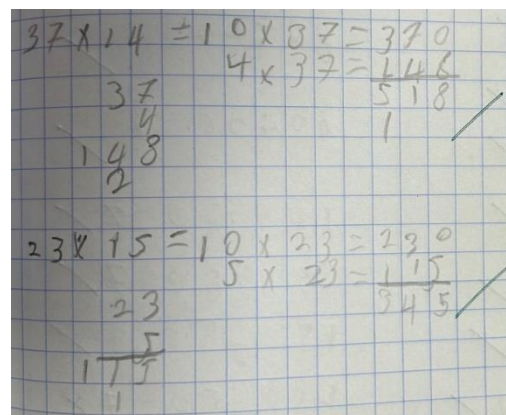 37 × 14 = 10 × 37 = 370
4 × 37 = 148
518
1
37
4
148
2
23 × 15 = 10 × 23 = 230
5 × 23 = 115
345
23
5
115
1